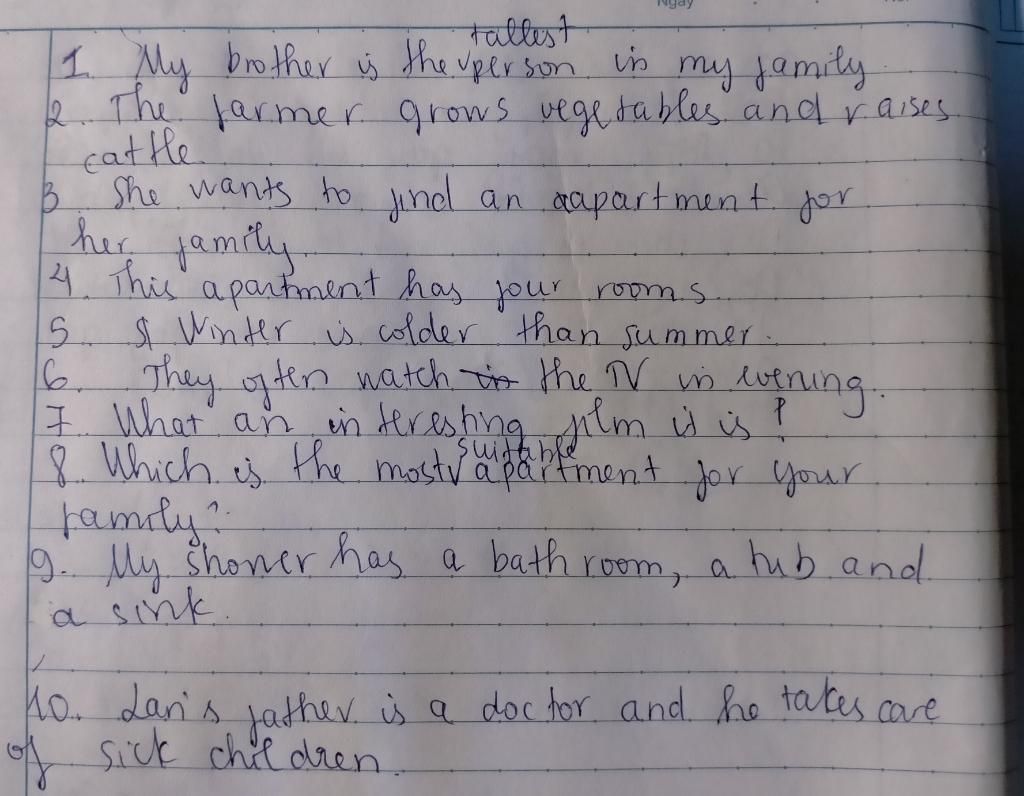 Ngày
1. My brother is the tallest person in my family
2. The farmer grows vegetables and raises
cattle.
3. She wants to find an apartment for
her family.
4. This apartment has four rooms.
5. Winter is colder than summer.
6. They often watch the TV in evening.
7. What an interesting film it is?
8. Which is the most suitable apartment for your
family?
9. My shower has a bathroom, a tub and
a sink.
10. Lan's father is a doctor and he takes care
of sick children.